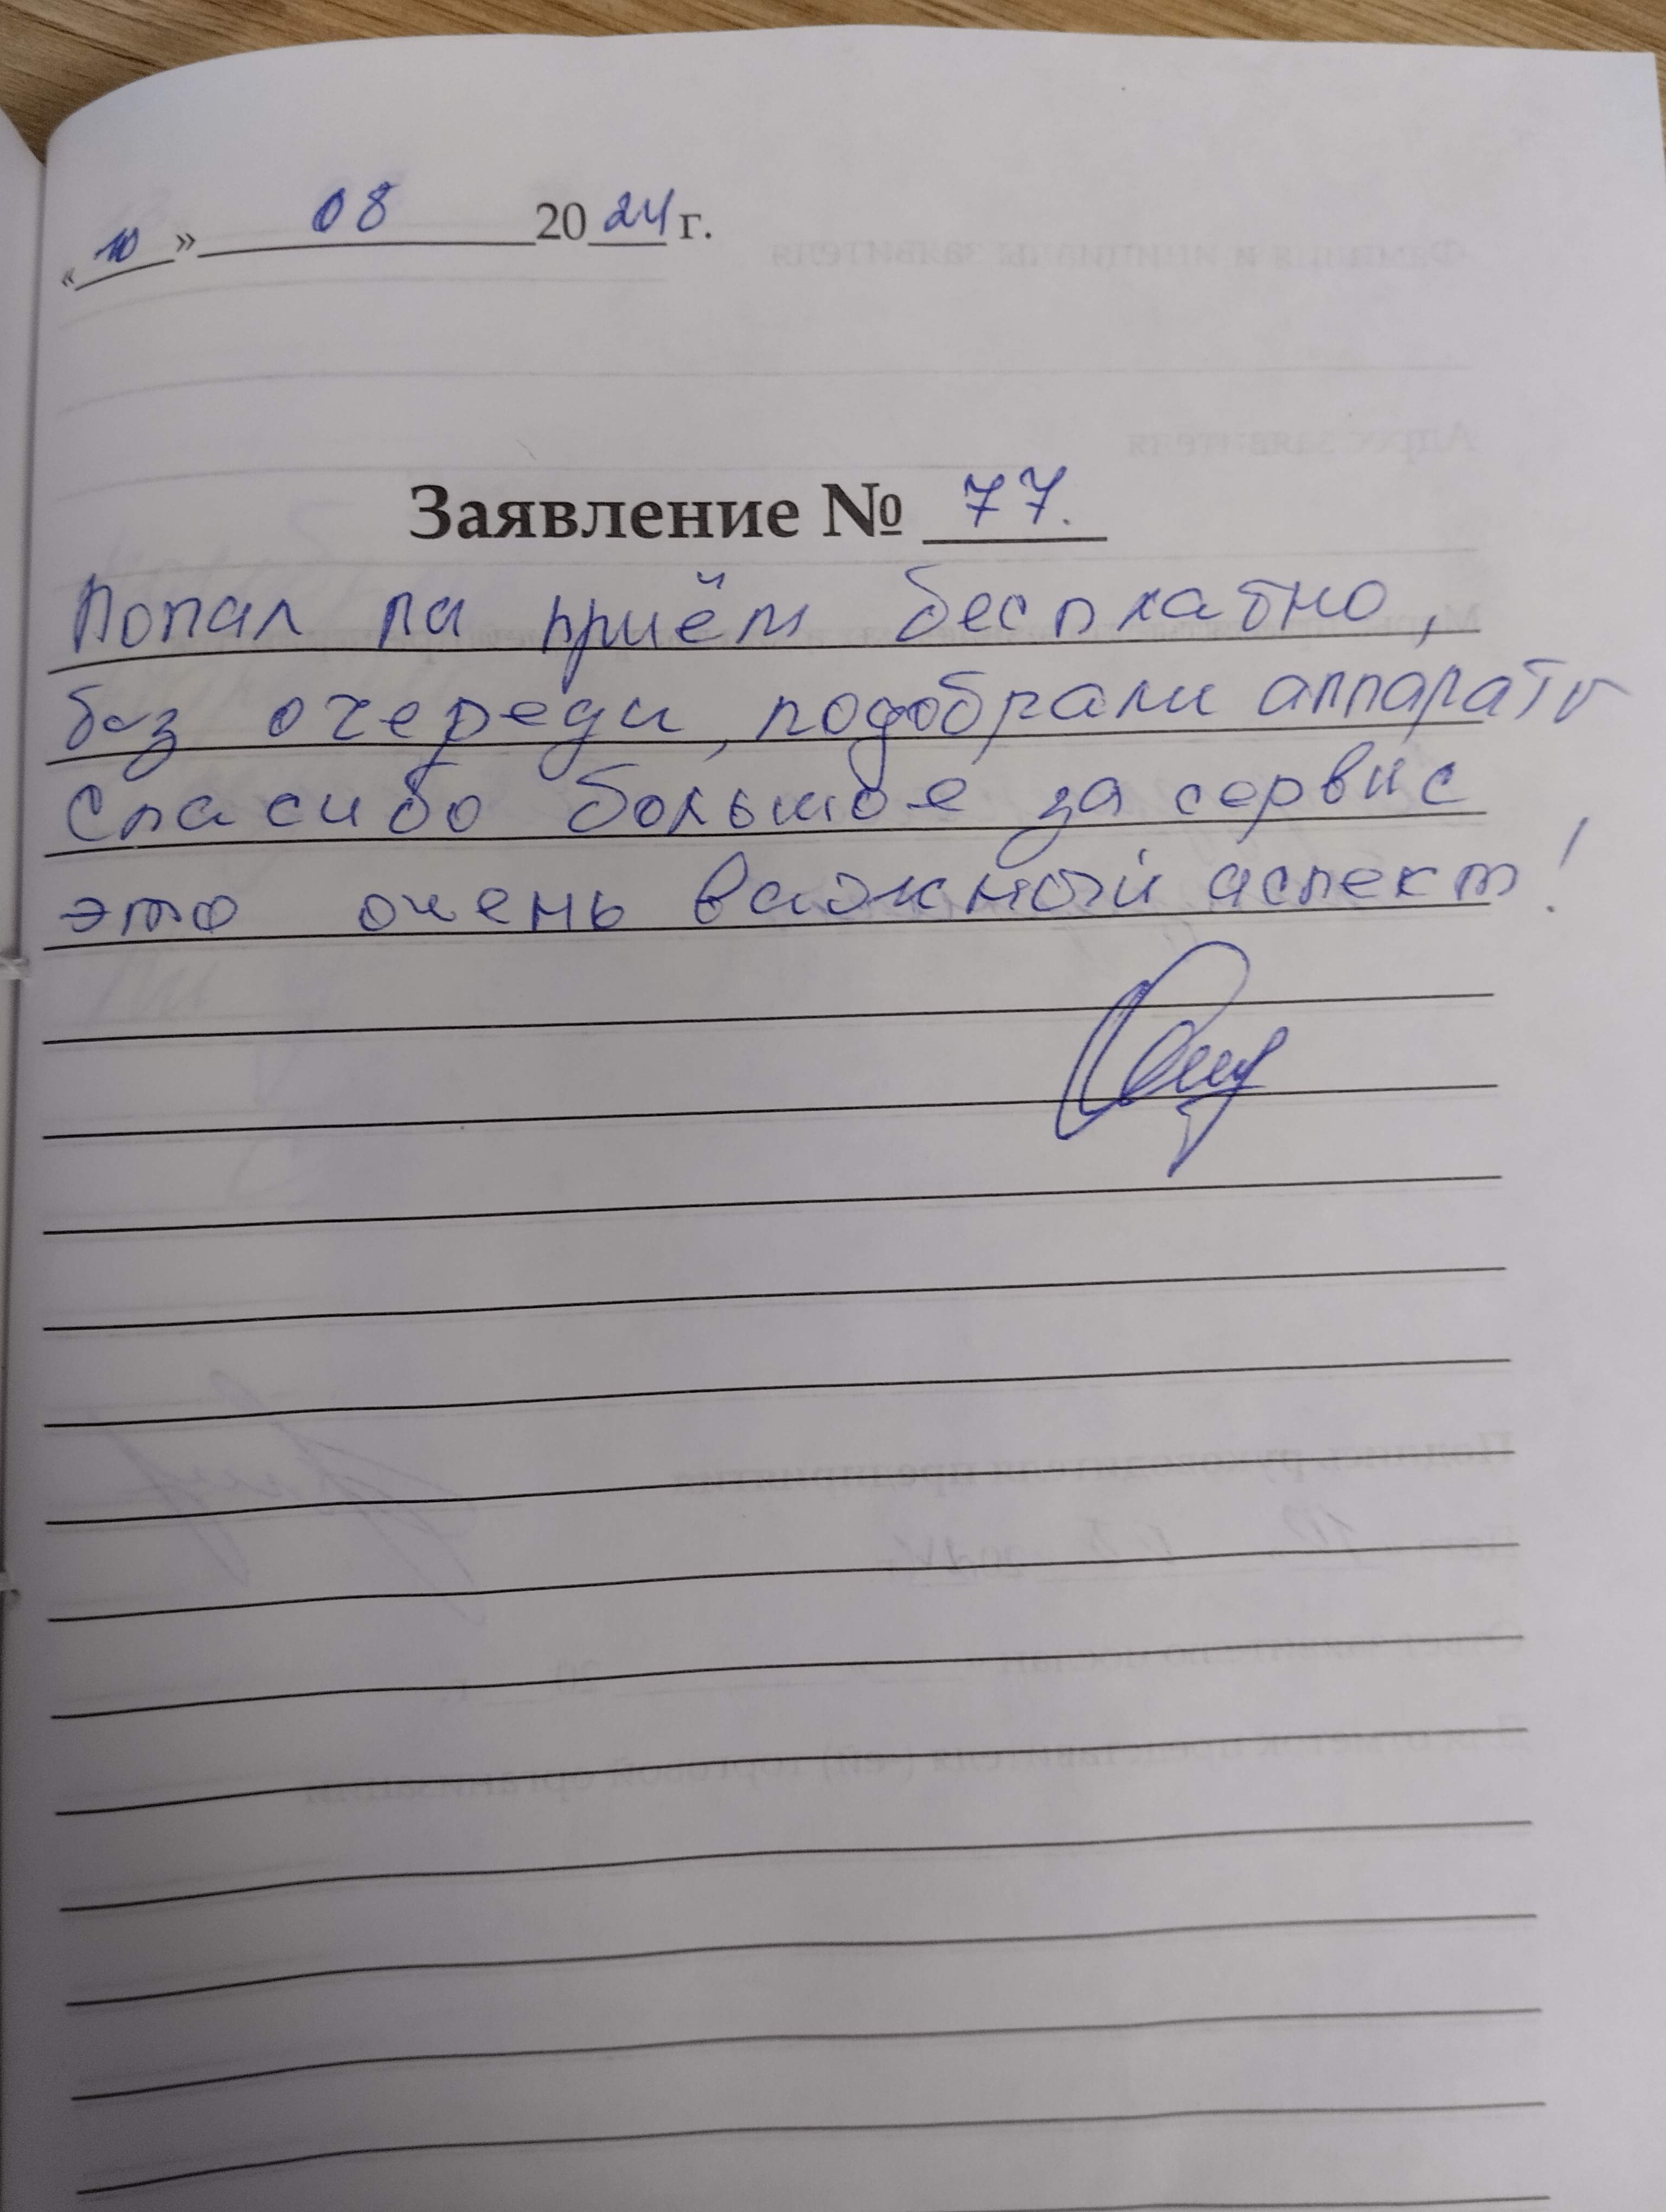 « 10 » 08 2024 г.
Заявление № 77.
Попал на приём бесплатно,
без очереди, подобрали аппараты
Спасибо большое за сервис
это очень важный аспект!